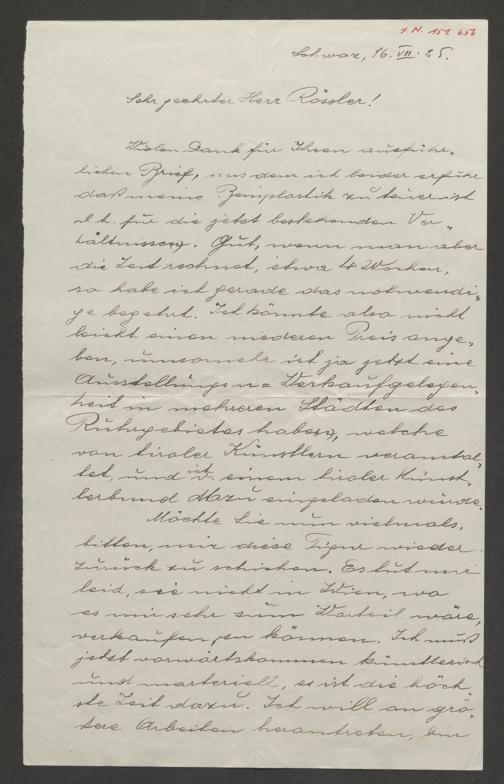 I N. 152 656
Schwaz, 16. VII. 25.
Sehr geehrter Herr Rössler!
Vielen Dank für Ihren ausführ-
lichen Brief, aus dem ich leider erfuhr
daß meine Beinplastik zu teuer ist
d. h. für die jetzt bestehenden Ver-
hältnissen. Gut, wenn man aber
die Zeit rechnet, etwa 4 Wochen,
so habe ich gerade das notwendi-
ge begehrt. Ich könnte also nicht
leicht einen niederen Preis ange-
ben, umsomehr ich ja jetzt eine
Ausstellungs u= Verkaufgelegen-
heit in mehreren Städten des
Ruhrgebietes haben, welche
von tiroler Künstlern veranstal-
tet, und ich v. einem tiroler Künst-
lerbund dazu eingeladen wurde.
Möchte Sie nun vielmals,
bitten, mir diese Figur wieder
zurück zu schicken. Es tut mir
leid, sie nicht in Wien, wo
es mir sehr zum Vorteil wäre,
verkaufen zu können. Ich muß
jetzt vorwärtskommen künstlerisch
und marteriell, es ist die höch-
ste Zeit dazu. Ich will an grö-
ßere Arbeiten herantreten, bin